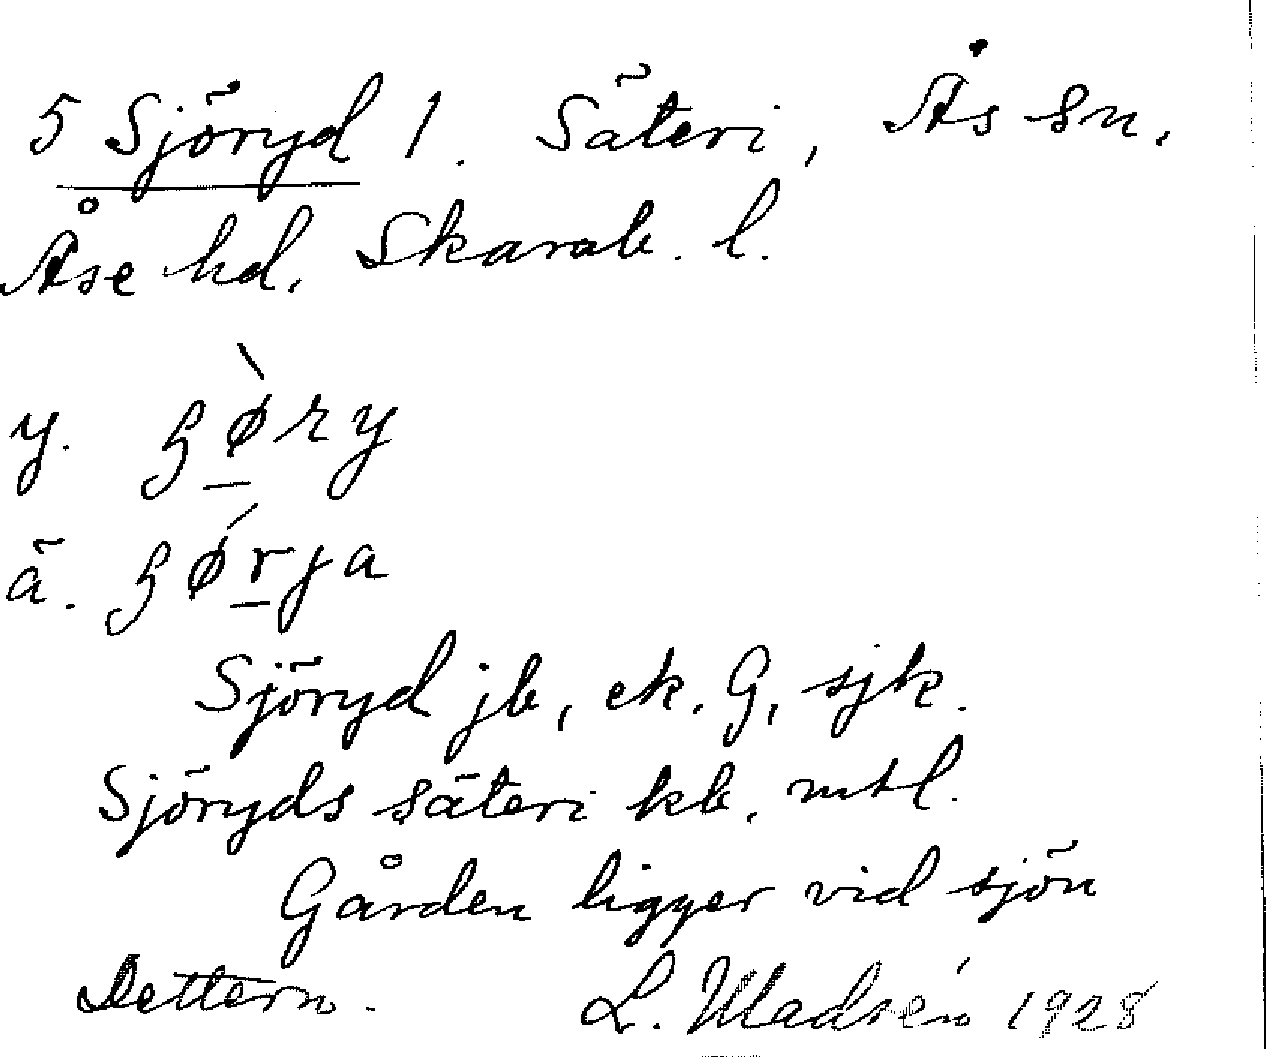 5 Sjöryd 1. Säteri, Ås sn.
Åse hd. Skarab. l.
y.
ä.
Sjöryd jb, ek. G, sjk.
Sjöryds säteri kb. mtl.
Gården ligger vid sjön
Dettern. L. Madsén 1928